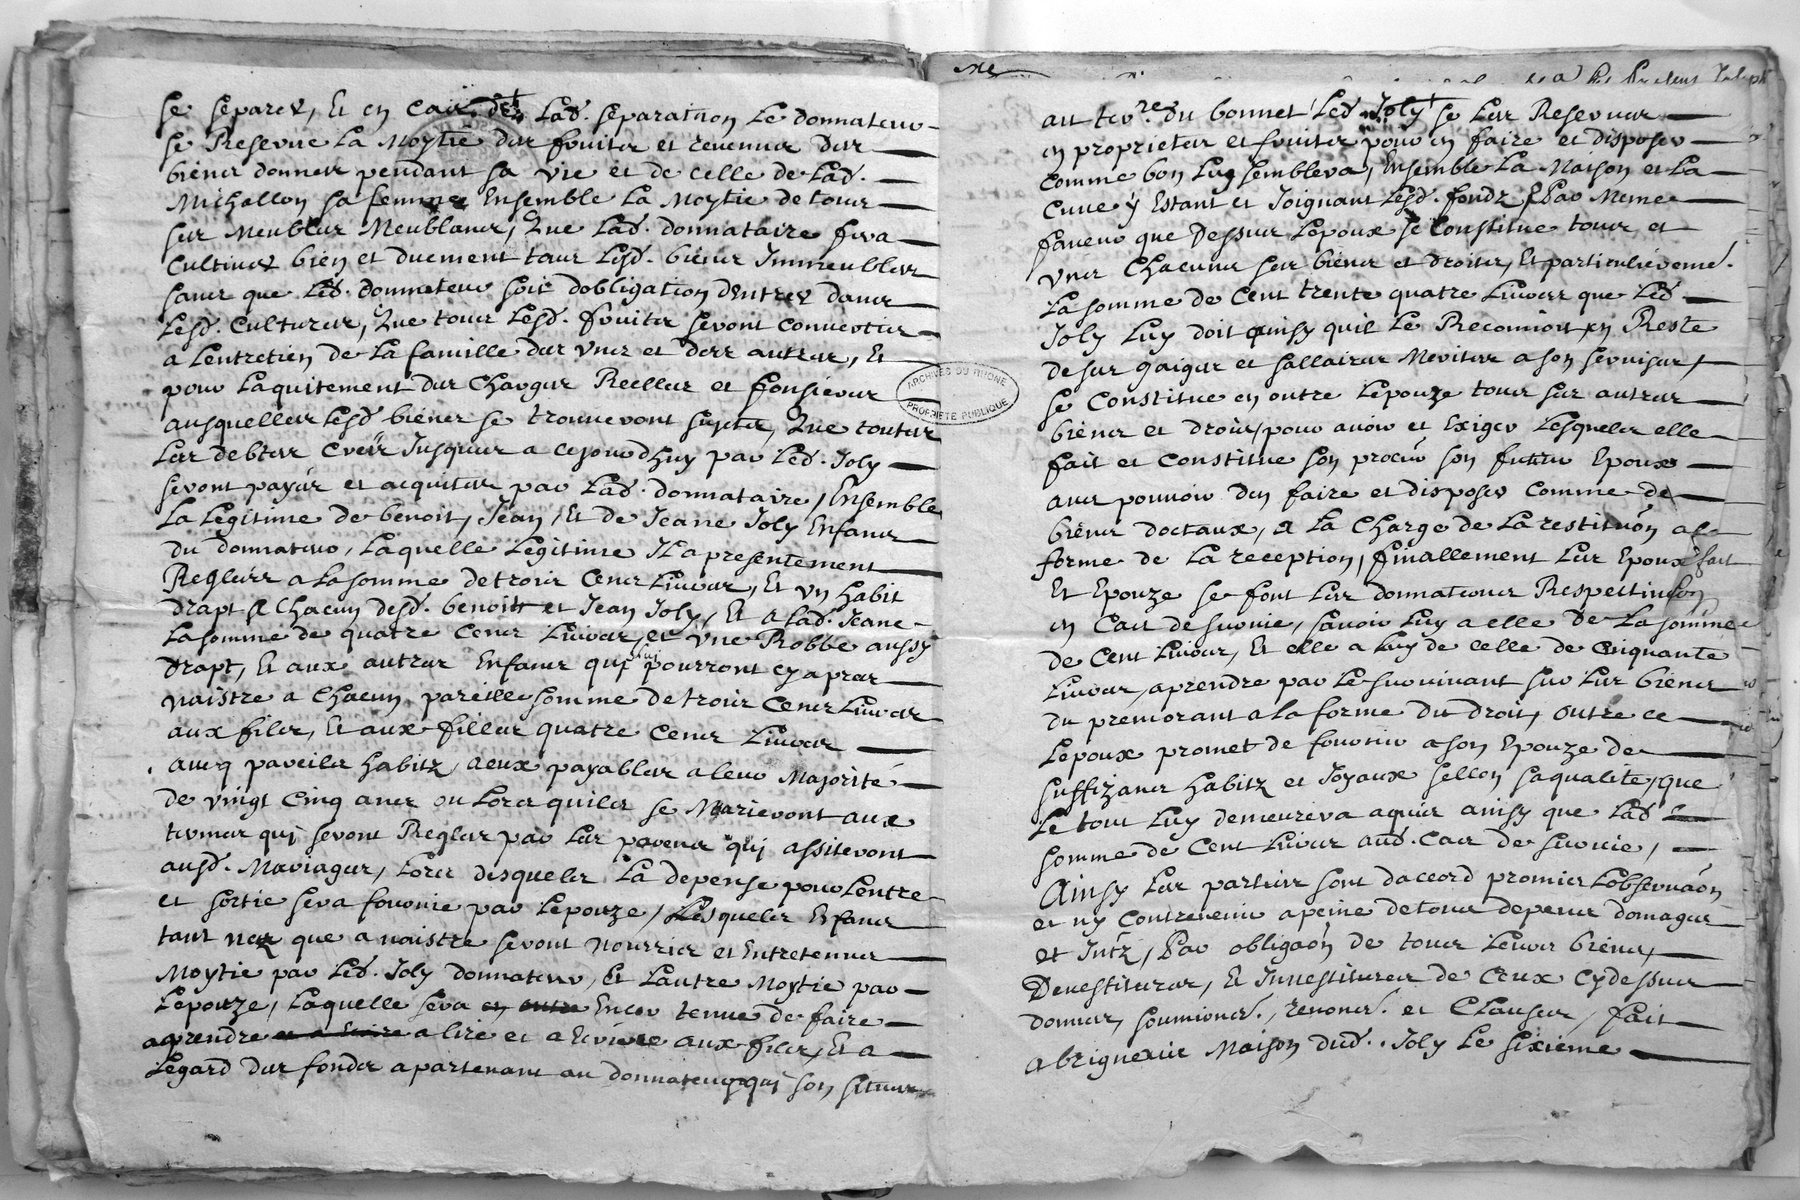 se separer, Et en Cas de Lad. separation Le donnateur
se Reserve La Moytie des fruites et revenus des
biens donnes pendant sa vie et de celle de Lad.
Michallon sa femme Ensemble La Moytie de tous
ses Meubles Meublans, Que Lad. donnataire fera
Cultiver bien et duement tous Lesd. biens Immeubles
sans que Led. donnateur soit dobligation dEntrer dans
Lesd. Cultures, Que tous Lesd. fruites seront Convertis
a Lentretien de La famille des Uns et des autres, Et
pour Laquitement des Charges Reelles et fonsieres
ausquelles Lesd. biens se trouveront sujetes, Que toutes
Les debtes Crées Jusques a cejourdhuy par Led. Joly
seront payés et acquites par Lad. donnataire, Ensemble
La Legitime de benoit, Jean, Et de Jeane Joly Enfans
du donnateur, Laquelle Legitime Il a presentement
Reglées a La somme de trois Cens Livres, Et Un habit
drapt a Chacun desd. benoit et Jean Joly, Et a Lad. Jeane
La somme de quatre Cens Livres, et Une Robbe aussy
drapt, Et aux autres Enfans qui pourront cy apres
naistre a Chacun pareille somme de trois Cens Livres
aux fils, Et aux filles quatre Cens Livres
avecq pareils habitz, a eux payables a leur Majorité
de vingt Cinq ans ou Lors quils se Marieront aux
termes qui seront Regles par Les parens qui assiteront
ausd. Mariages, Lors desquels La depense pour Lentre
et sortie sera fournie par Lepouze, Lesquels Enfans
tant nez que a naistre seront Nourris et Entretenus
Moytie par Led. Joly donnateur, Et Lautre Moytie par
Lepouze, Laquelle sera en outre Encor tenue de faire
aprendre a lire et a Ecrire aux fils, Et a
Legard des fonds apartenant au donnateur qui son situes
au ter.re du bonnet Led. Joly se Les Reserver
en proprietes et fruites pour en faire et disposer
Comme bon Luy semblera, Ensemble La Maison et La
Cuve y Estant et Joignant Lesd. fondz, Par Meme
faveur que Dessus Lepoux se Constitue tous et
Uns Chacuns ses biens et droits, Et particulieremẽ.
La somme de Cent trente quatre Livres que Led.
Joly Luy doit ainsy quil Le Reconnoit en Reste
de ses gaiges et sallaires Merites a son services,
se Constitue en outre Lepouze tous ses autres
biens et droits, pour avoir et Exiger Lesquels elle
fait et Constitue son procur son futur Epoux
avec pouvoir den faire et disposer Comme de
biens doctaux, a La Charge de La restituõn a la
forme de La reception, finallement Les Epoux
Et Epouze se font Les donnations Respectives
en Cas de survie, savoir Luy a elle de La somme
de Cent Livres, Et elle a Luy de celle de Cinquante
Livres, aprendre par Le survivant sur Les biens
du premorant a la forme du droit, Outre ce
Lepoux promet de fournir a son Epouze de
suffizans habitz et Joyaux sellon sa qualite, que
Le tout Luy demeurera aquis ainsy que Lad.
somme de Cent Livres aud. Cas de survie,
Ainsy Les parties sont daccord promis Lobservaõn
et ny Contrevenir a peine de tous depens domages
et Intz, Par obligaõn de tous Leurs biens,
Devestitures, Et Investitures de Ceux Cydessus
donnes, soumions., renons. et Clauses, fait
a brignexie Maison dud. Joly Le sixieme
ARCHIVES DU RHONE
PROPRIETE PUBLIQUE